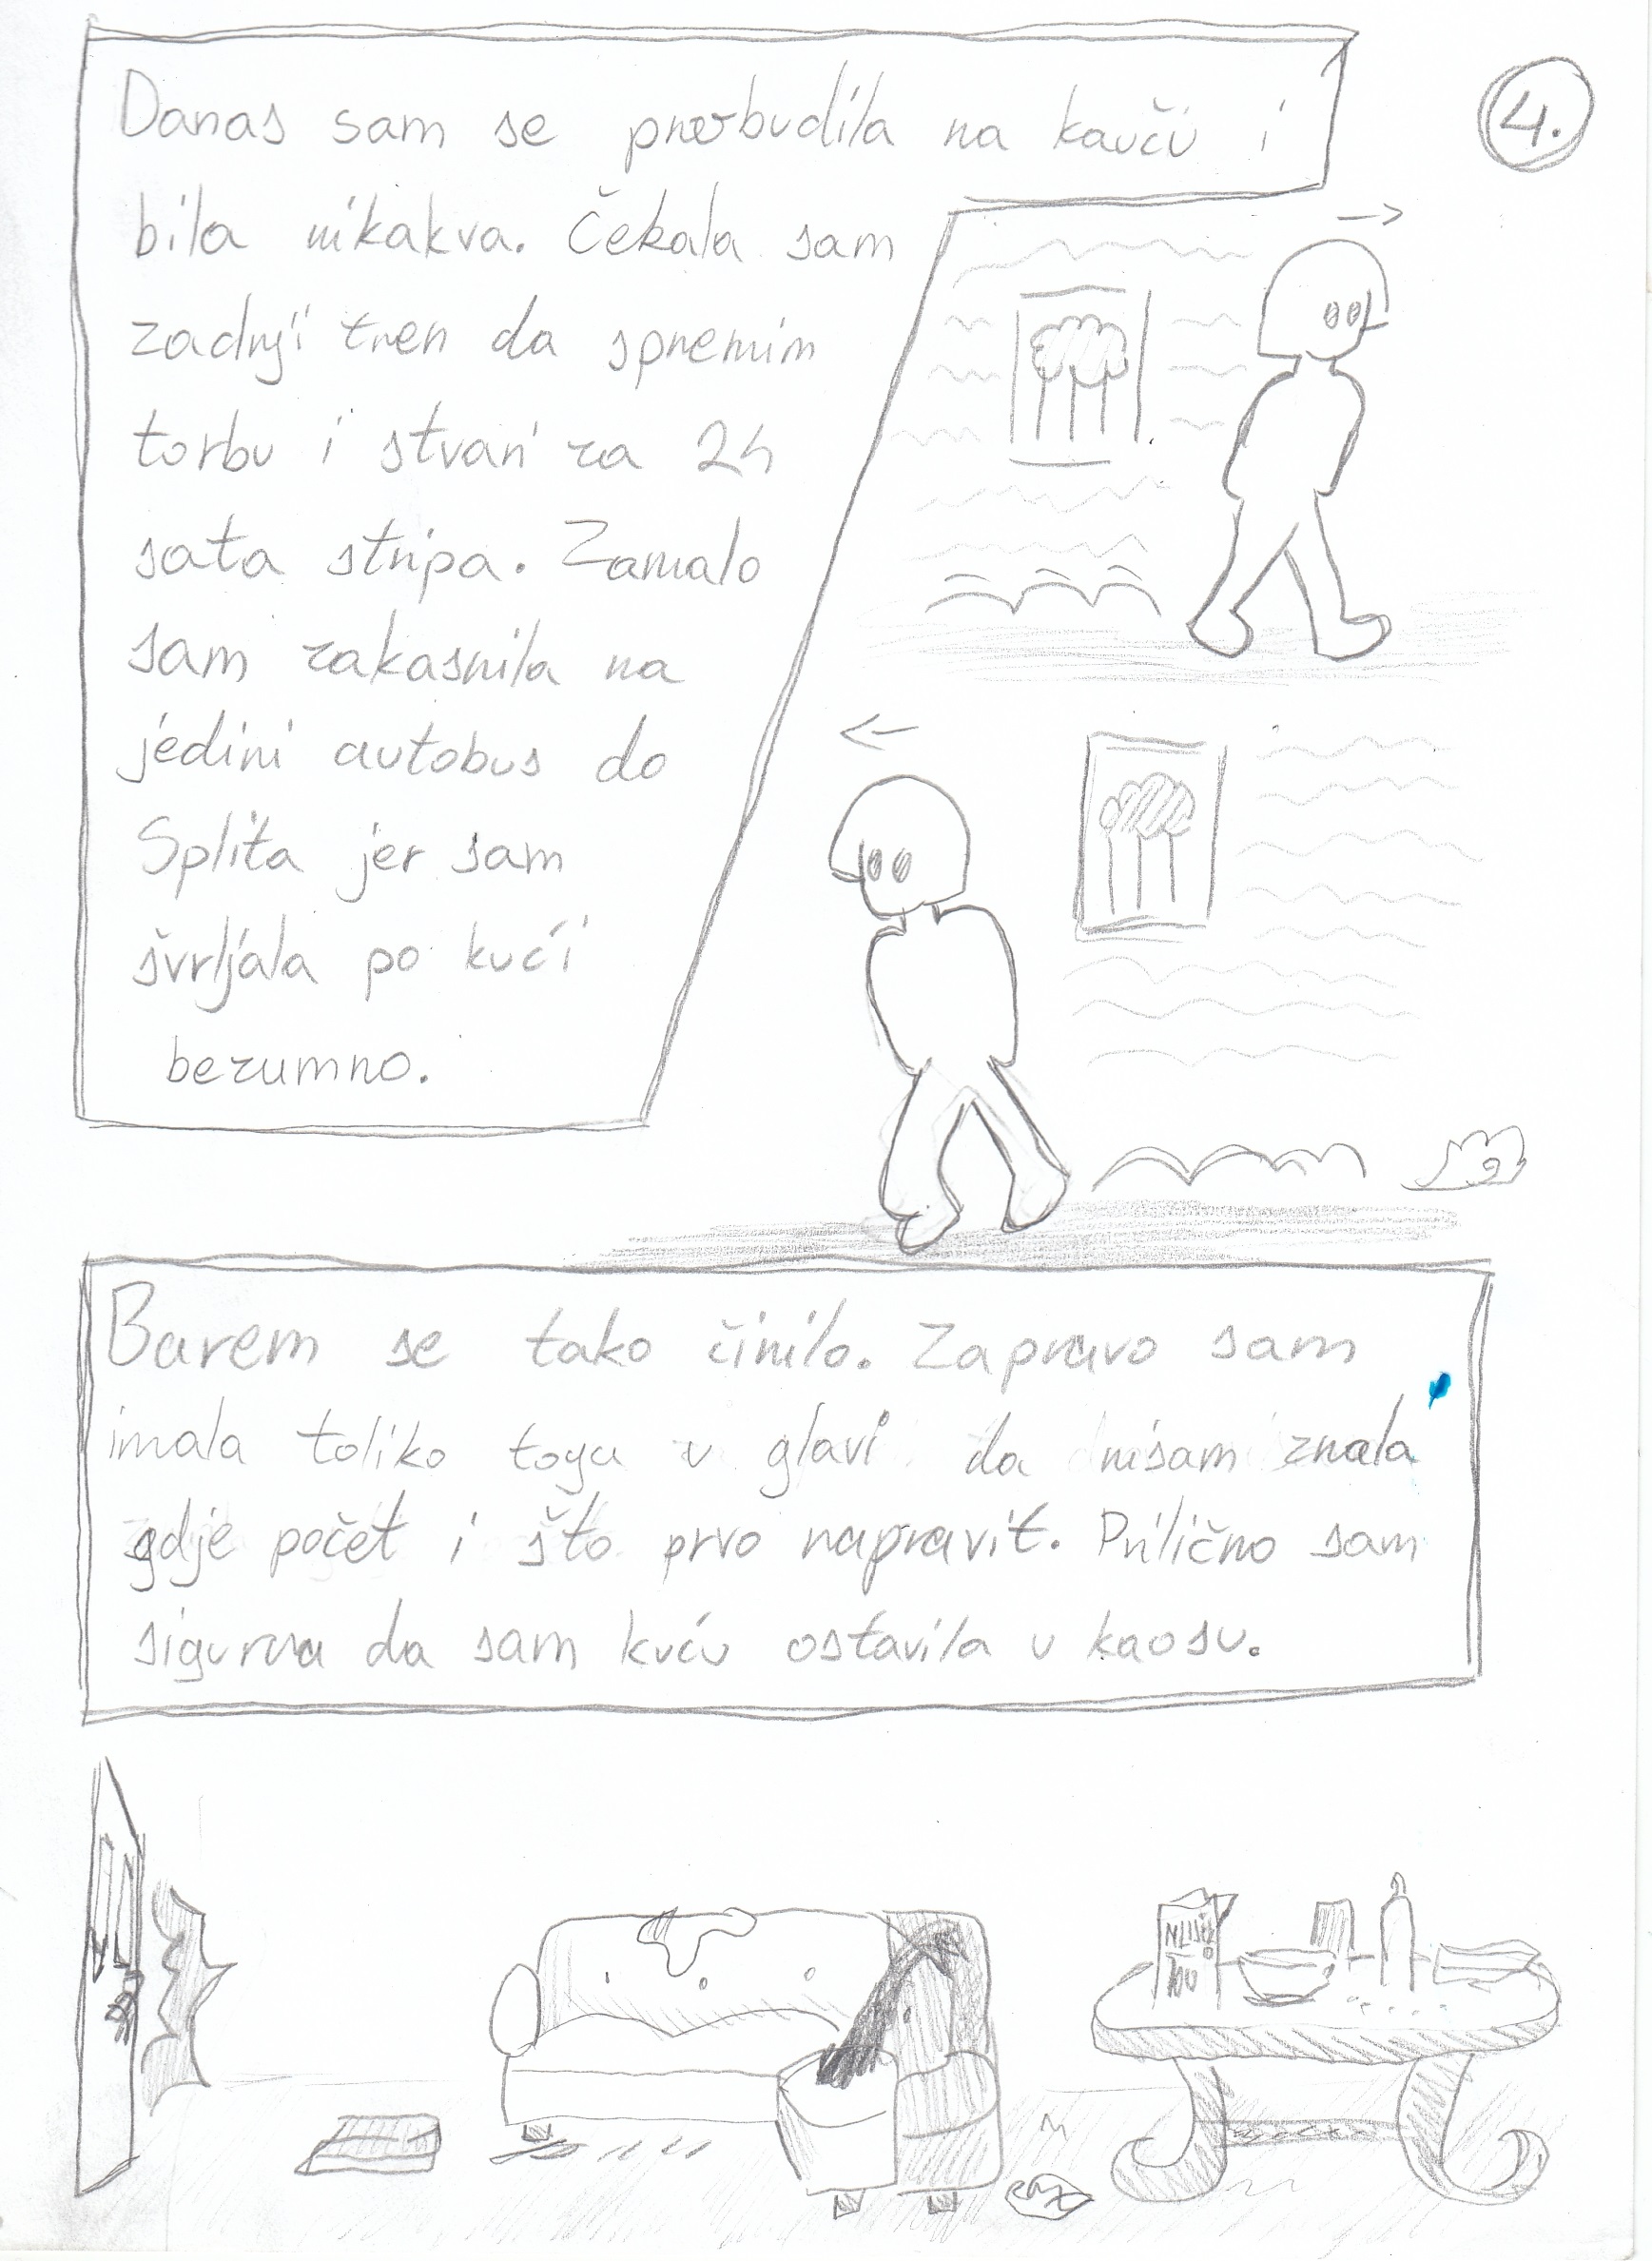 4.
Danas sam se probudila na kauču i
bila nikakva. Čekala sam
zadnji tren da spremim
torbu i stvari za 24
sata stripa. Zamalo
sam zakasnila na
jedini autobus do
Splita jer sam
švrljala po kući
bezumno.
Barem se tako činilo. Zapravo sam
imala toliko toga u glavi da nisam znala
gdje počet i što prvo napravit. Prilično sam
sigurna da sam kuću ostavila u kaosu.